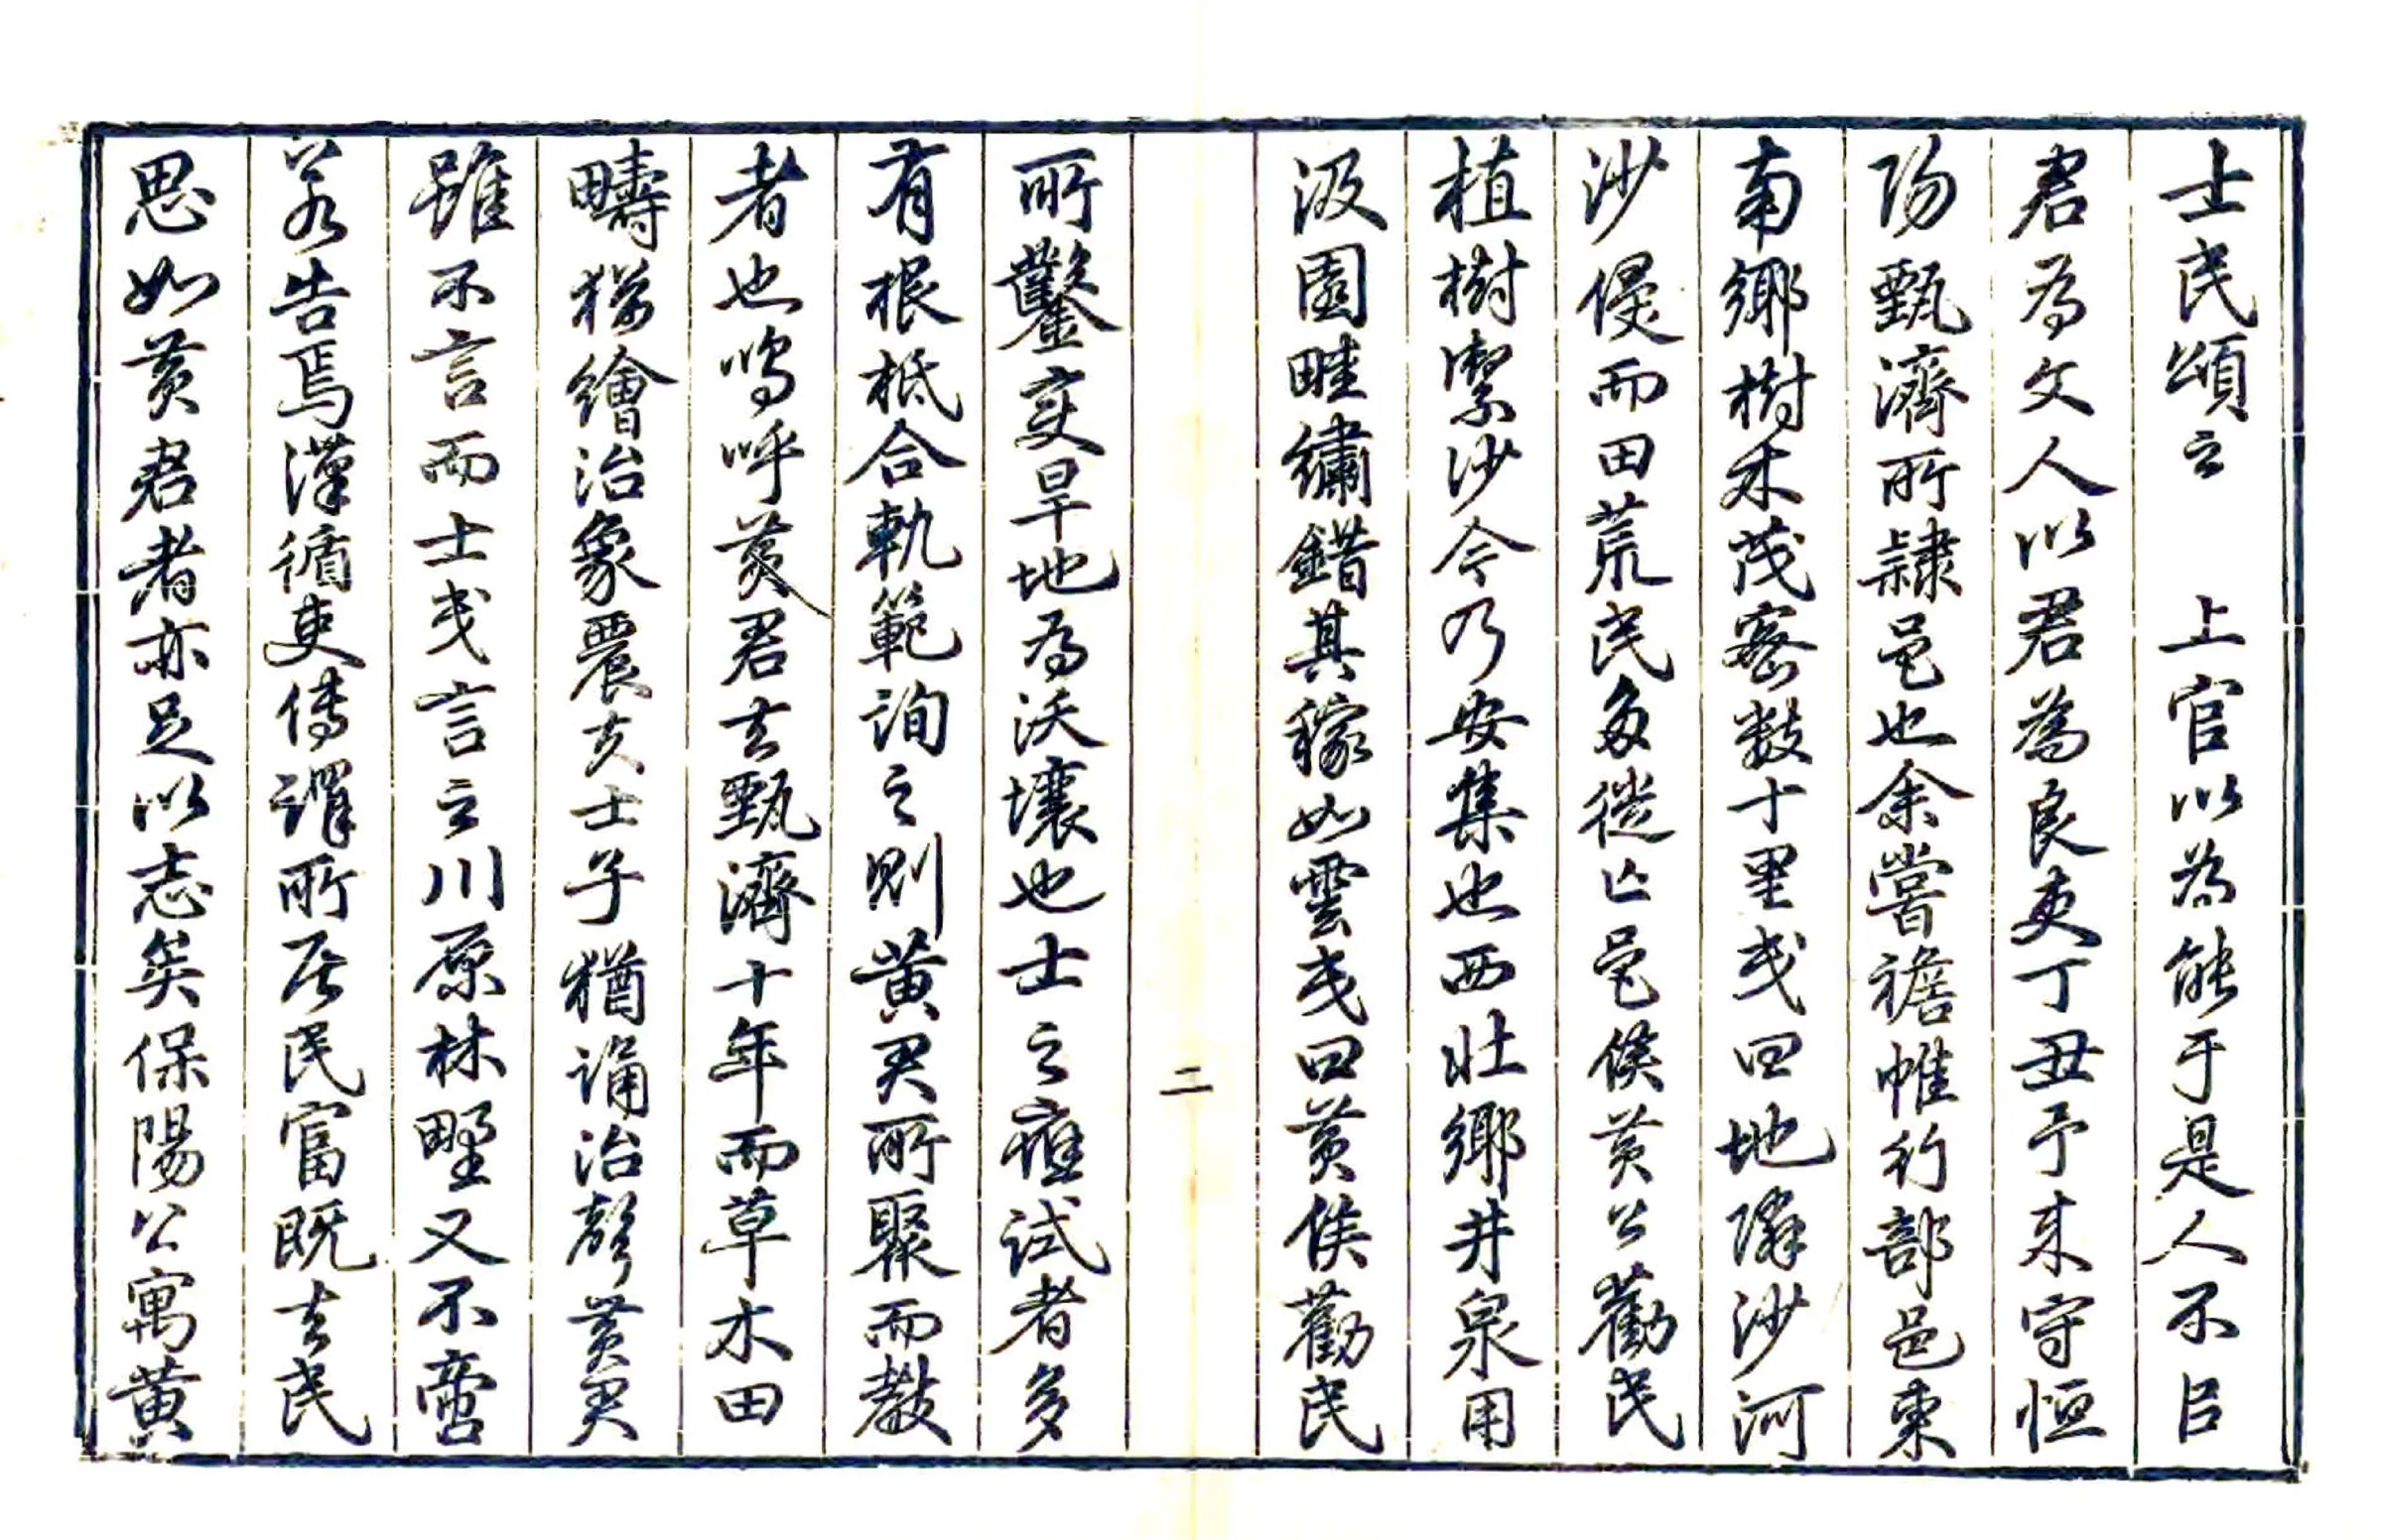 士民頌之　上官以為能于是人不以
君為文人以君為良吏丁丑予来守恒
陽甄濟所隷邑也余嘗襜帷行部邑東
南鄉樹木茂密數十里或曰地隣沙河
沙侵而田荒民多徙亡邑侯黄公勸民
植樹禦沙今乃安集也西壯鄉井泉用
汲園畦繡錯其稼如雲或曰黄侯勸民
二
所鑿变旱地為沃壤也士之應試者多
有根柢合軌範詢之則黄君所聚而教
者也嗚呼黄君去甄濟十年而草木田
疇猶繪治象農夫士子猶誦治聲黄君
雖不言而士或言之川原林野又不啻
若告焉漢循吏傳謂所居民富既去民
思如黄君者亦足以志矣保陽公寓黄